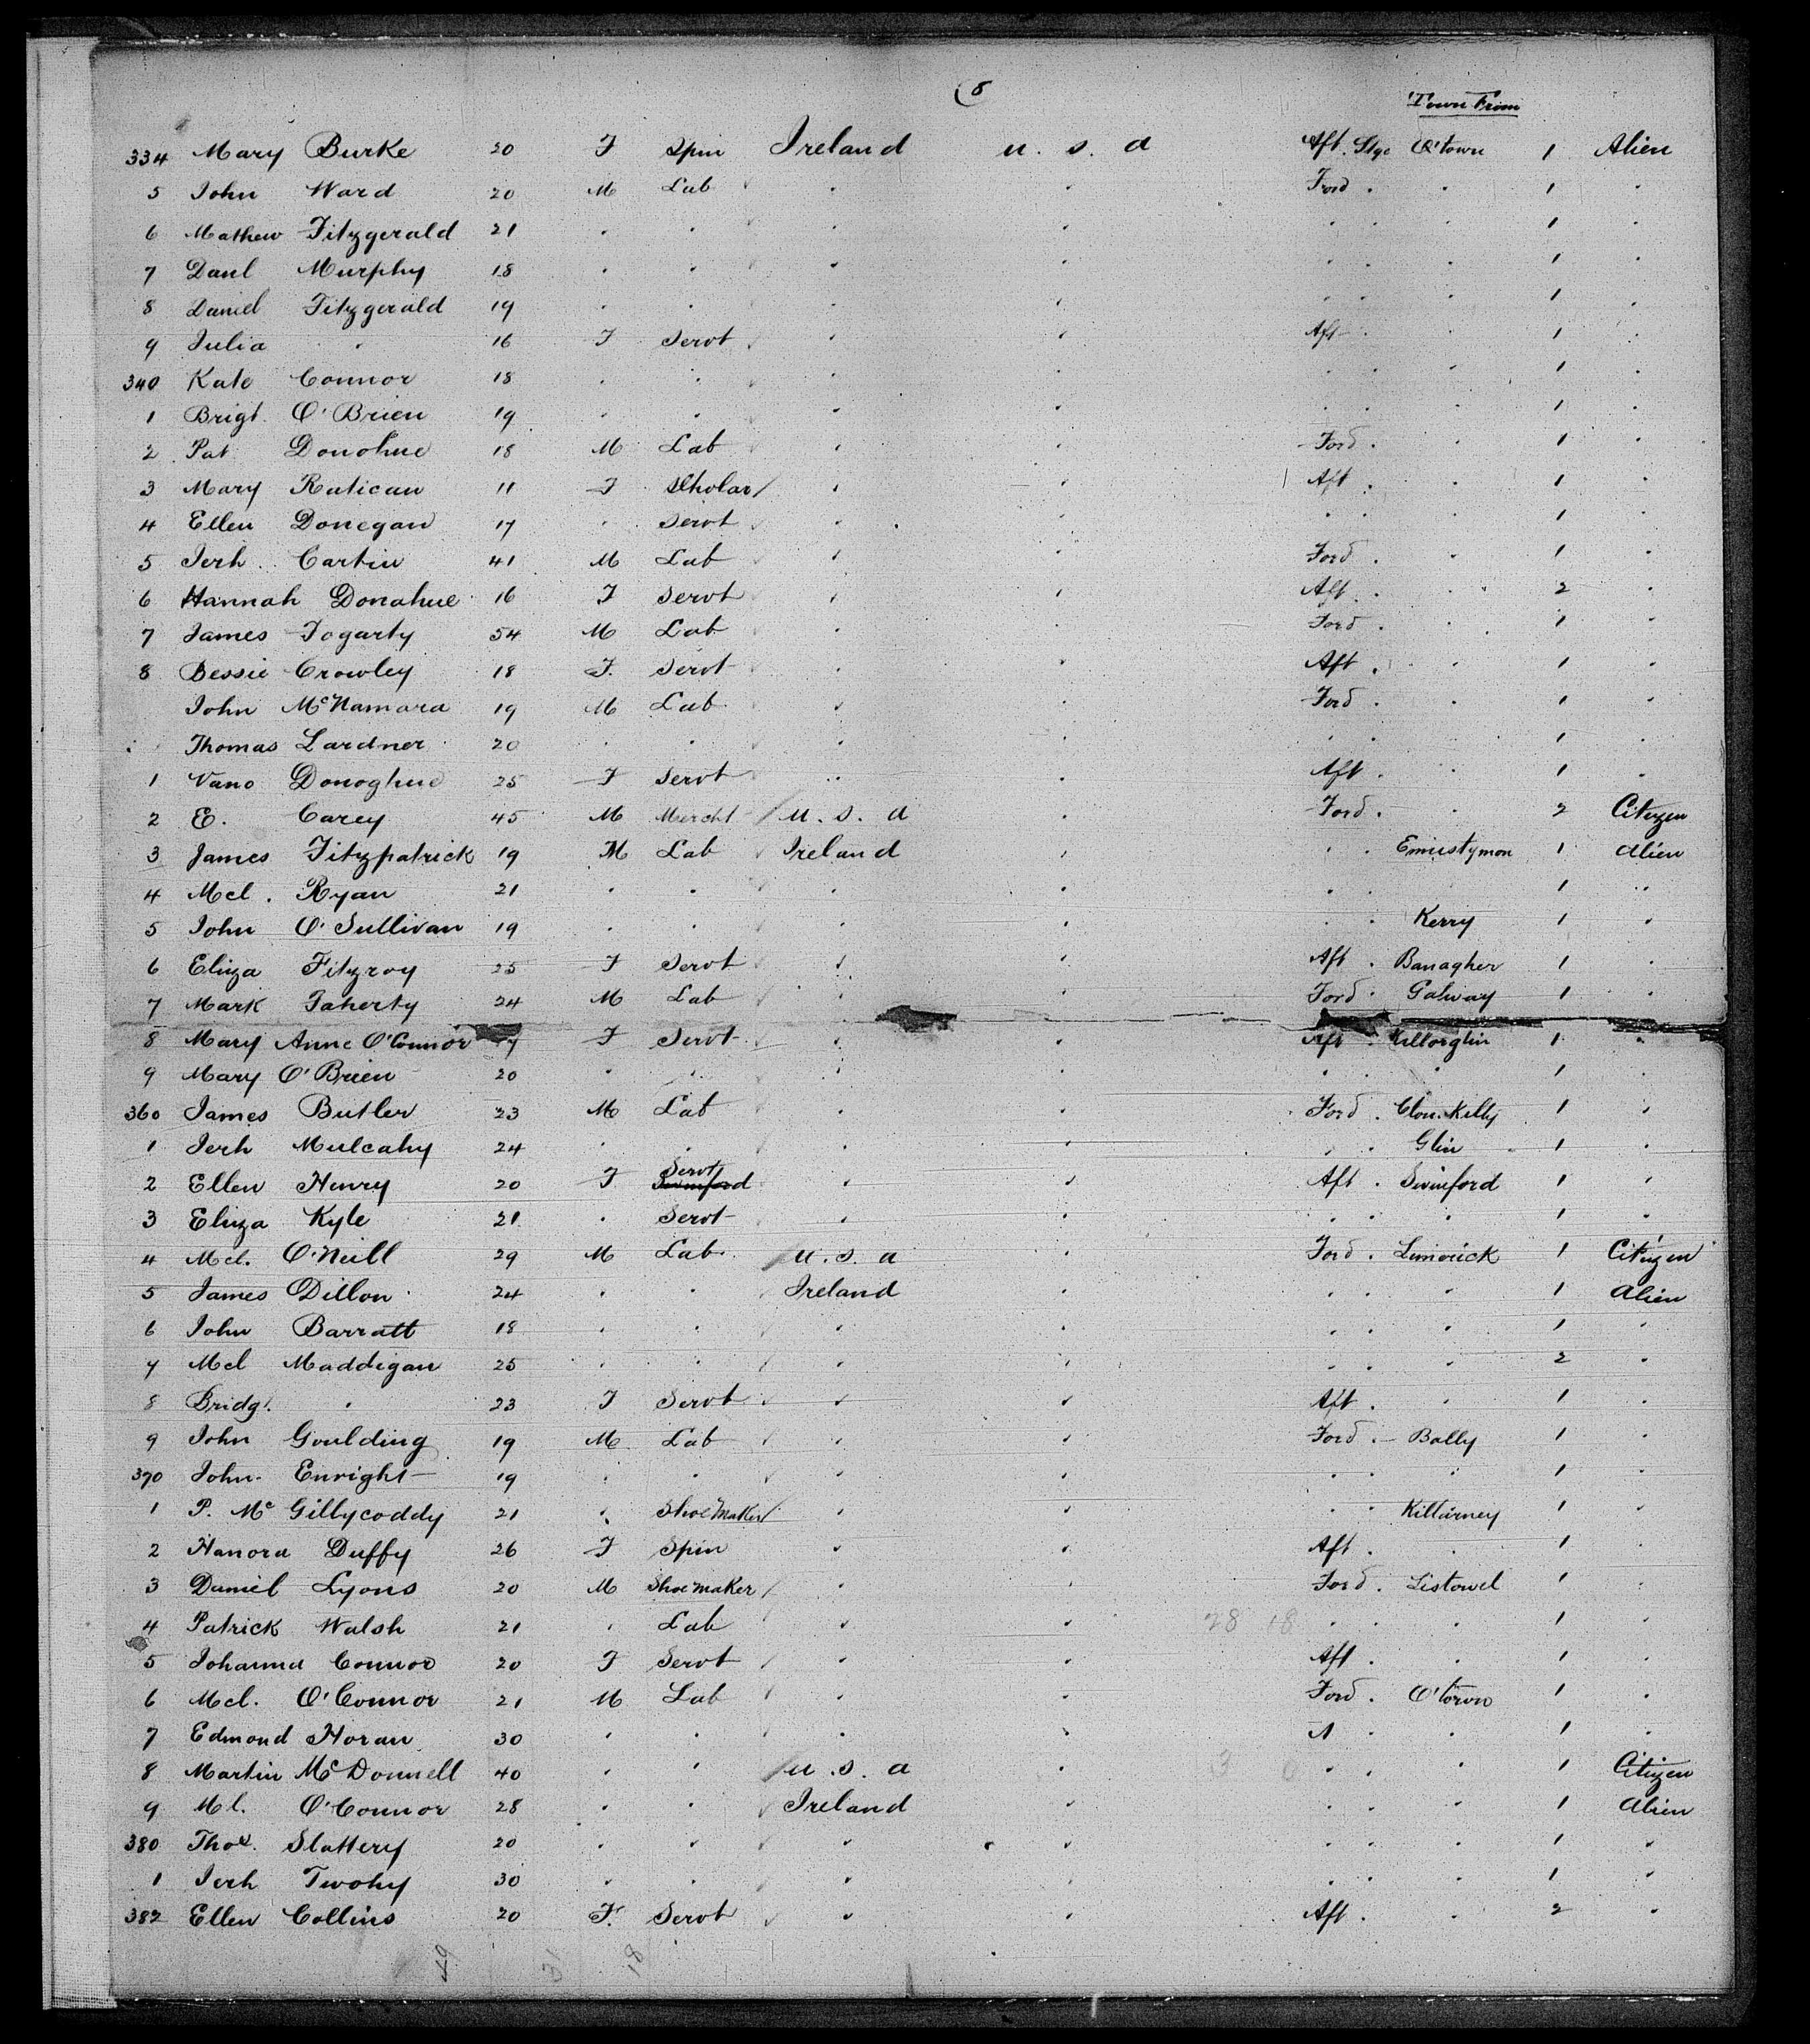 8
Town From
334 Mary Burke 20 F Spin Ireland U. S. A Aft. Stge Q'town 1 Alien
5 John Ward 20 M Lab " " Ford . " 1 "
6 Mathew Fitzgerald 21 " " " " " " " 1 "
7 Danl Murphy 18 " " " " " " " 1 "
8 Daniel Fitzgerald 19 " " " " " " " 1 "
9 Julia " 16 F Servt " " Aft " " 1 "
340 Kate Connor 18 " " " " " " " 1 "
1 Brigt. O'Brien 19 " " " " " " " 1 "
2 Pat Donohue 18 M Lab " " Ford . " 1 "
3 Mary Ratican 11 F Scholar " " Aft . " 1 "
4 Ellen Donegan 17 " Servt " " " " " 1 "
5 Jerh. Cartin 41 M Lab " " Ford . " 1 "
6 Hannah Donahue 16 F Servt " " Aft . " 2 "
7 James Fogarty 54 M Lab " " Ford . " 1 "
8 Bessie Crowley 18 F. Servt " " Aft . " 1 "
John McNamara 19 M Lab " " Ford . " 1 "
Thomas Lardner 20 " " " " " " " 1 "
1 Nano Donoghue 25 F Servt " " Aft . " 1 "
2 E. Carey 45 M Mercht U. S. A " Ford . " 2 Citizen
3 James Fitzpatrick 19 M Lab Ireland " " " Ennistymon 1 Alien
4 Mcl. Ryan 21 " " " " " " " 1 "
5 John O'Sullivan 19 " " " " " " Kerry 1 "
6 Eliza Fitzroy 25 F Servt " " Aft . Banagher 1 "
7 Mark Faherty 24 M Lab " " Ford . Galway 1 "
8 Mary Anne O'Connor F Servt " " Aft . Killorglin 1 "
9 Mary O'Brien 20 " " " " " " " 1 "
360 James Butler 23 M Lab " " Ford . Clon.Kelly 1 "
1 Jerh Mulcahy 24 " " " " " " Glin 1 "
2 Ellen Henry 20 F Swinford Servt " " Aft . Swinford 1 "
3 Eliza Kyle 21 " Servt " " " " " 1 "
4 Mcl. O'Neill 29 M Lab. U. S. A " Ford . Limerick 1 Citizen
5 James Dillon 24 " " Ireland " " " " 1 Alien
6 John Barratt 18 " " " " " " " 1 "
7 Mcl Maddigan 25 " " " " " " " 2 "
8 Bridgt. " 23 F Servt " " Aft . " 1 "
9 John Goulding 19 M Lab " " Ford . Bally 1 "
370 John Enright 19 " " " " " " " 1 "
1 P. Mc Gillycoddy 21 " Shoemaker " " " " Killarney 1 "
2 Hanora Duffy 26 F Spin " " Aft . " 1 "
3 Daniel Lyons 20 M Shoemaker " " Ford . Listowel 1 "
4 Patrick Walsh 21 " Lab " " 28 18 " " " 1 "
5 Johanna Connor 20 F Servt " " Aft . " 1 "
6 Mcl. O'Connor 21 M Lab " " Ford . Q'town 1 "
7 Edmond Horan 30 " " " " " " " 1 "
8 Martin McDonnell 40 " " U. S. A " 3 0 " " " 1 Citizen
9 Ml. O'Connor 28 " " Ireland " " " " 1 Alien
380 Thos. Slattery 20 " " " " " " " 1 "
1 Jerh Twohy 30 " " " " " " " 1 "
382 Ellen Collins 20 F. Servt " " Aft . " 2 "
49 31 18